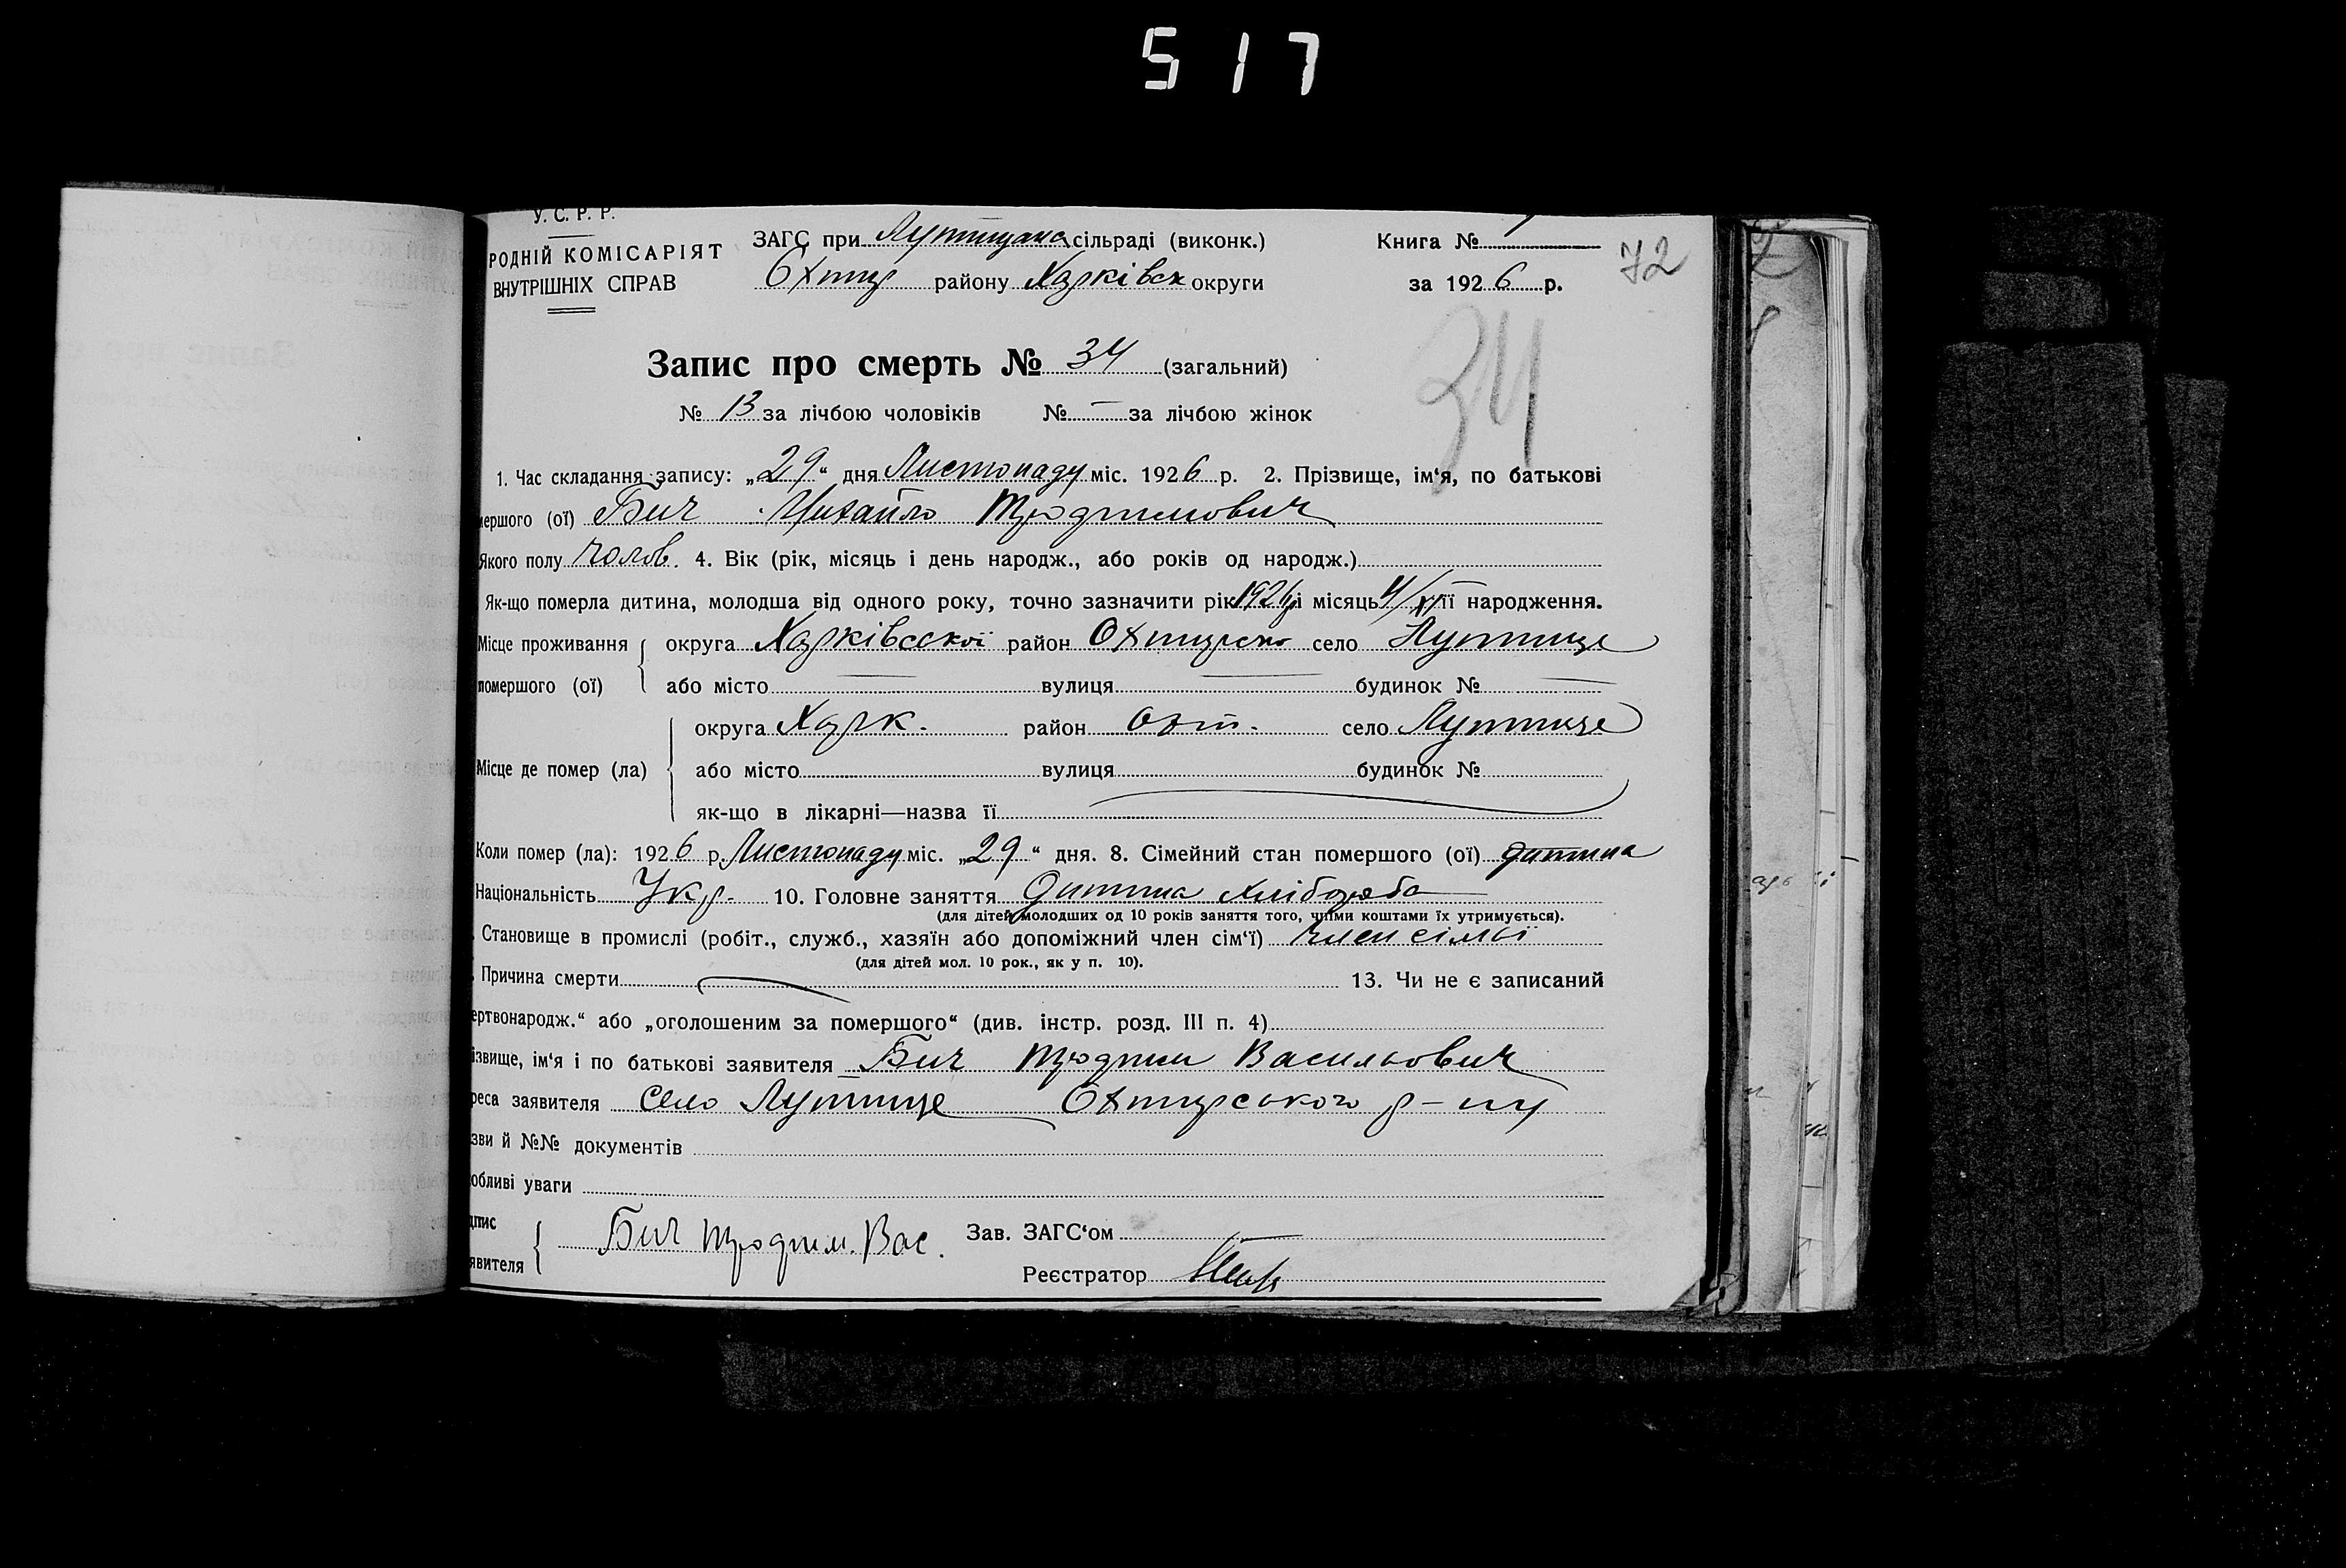 517
У. С. Р. Р.
РОДНІЙ КОМІСАРІЯТ
ВНУТРІШНІХ СПРАВ
ЗАГС при Лутищанс сільраді (виконк.)
Охтир району Харківск округи
Книга №
за 1926 р.
72
Запис про смерть № 34 (загальний)
34
№ 13 за лічбою чоловіків № — за лічбою жінок
1. Час складання запису: „29“ дня Листопаду міс. 1926 р. 2. Прізвище, ім‘я, по батькові
мершого (ої) Бич Михайло Трохимович
Якого полу чолов. 4. Вік (рік, місяць і день народж., або років од народж.)
Як-що померла дитина, молодша від одного року, точно зазначити рік і місяць її народження.
Місце проживання округа Харківської район Охтирськ село Лутище
помершого (ої) або місто — вулиця — будинок № —
округа Харк. район Охт. село Лутище
Місце де помер (ла) або місто вулиця будинок №
як-що в лікарні—назва її
Коли помер (ла): 1926 р. Листопаду міс. „29“ дня. 8. Сімейний стан помершого (ої) дитина
Національність Укр. 10. Головне заняття Дитина хлібороба
(для дітей молодших од 10 років заняття того, чиїми коштами їх утримується).
Становище в промислі (робіт., служб., хазяїн або допоміжний член сім‘ї) член сімьї
(для дітей мол. 10 рок., як у п. 10).
Причина смерти 13. Чи не є записаний
ертвонародж.“ або „оголошеним за помершого“ (див. інстр. розд. III п. 4)
ізвище, ім‘я і по батькові заявителя Бич Трохим Васильович
реса заявителя Село Лутище Охтирського р-ну
зви й №№ документів
обливі уваги
дпис
явителя Бич Трохим. Вас.
Зав. ЗАГС‘ом
Реєстратор